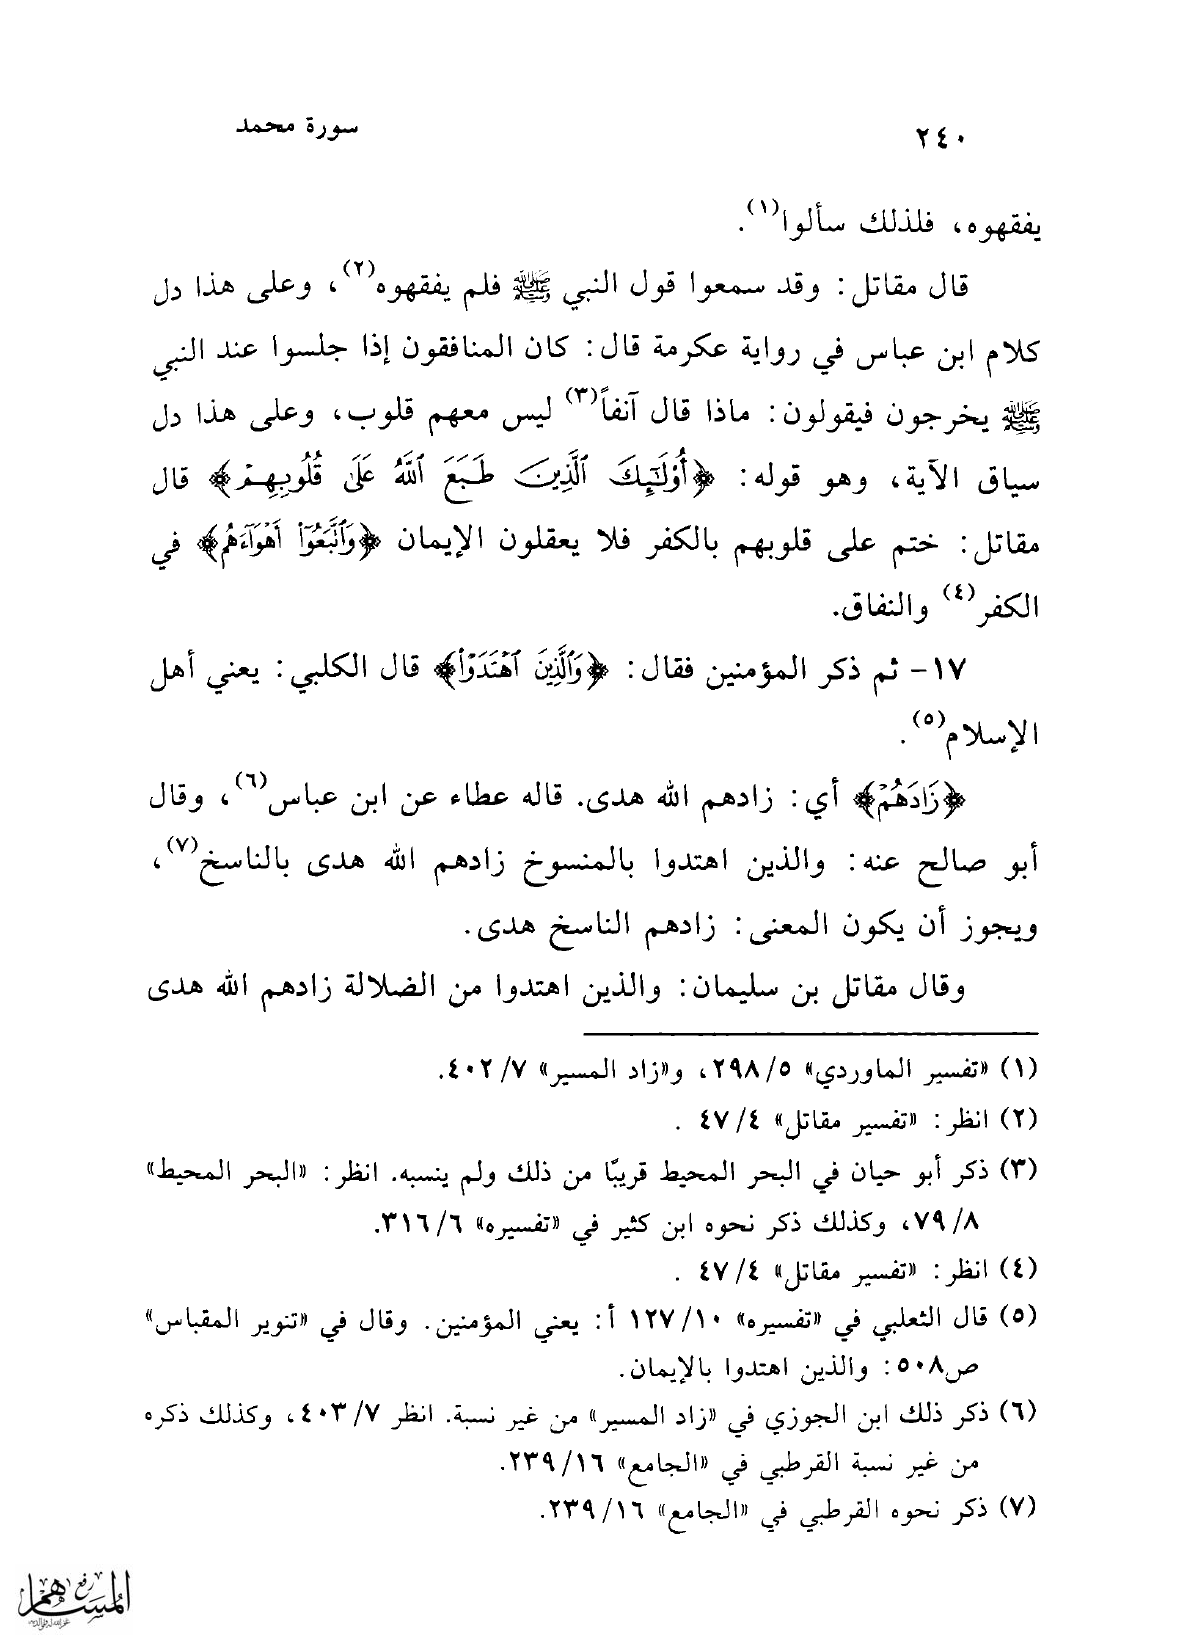 ٢٤٠ سورة محمد
يفقهوه، فلذلك سألوا(١).
قال مقاتل: وقد سمعوا قول النبي ﷺ فلم يفقهوه(٢)، وعلى هذا دل
كلام ابن عباس في رواية عكرمة قال: كان المنافقون إذا جلسوا عند النبي
ﷺ يخرجون فيقولون: ماذا قال آنفاً(٣) ليس معهم قلوب، وعلى هذا دل
سياق الآية، وهو قوله: ﴿أُوْلَٰٓئِكَ ٱلَّذِينَ طَبَعَ ٱللَّهُ عَلَىٰ قُلُوبِهِمۡ﴾ قال
مقاتل: ختم على قلوبهم بالكفر فلا يعقلون الإيمان ﴿وَٱتَّبَعُوٓاْ أَهۡوَآءَهُمۡ﴾ في
الكفر(٤) والنفاق.
١٧- ثم ذكر المؤمنين فقال: ﴿وَٱلَّذِينَ ٱهۡتَدَوۡاْ﴾ قال الكلبي: يعني أهل
الإسلام(٥).
﴿زَادَهُمۡ﴾ أي: زادهم الله هدى. قاله عطاء عن ابن عباس(٦)، وقال
أبو صالح عنه: والذين اهتدوا بالمنسوخ زادهم الله هدى بالناسخ(٧)،
ويجوز أن يكون المعنى: زادهم الناسخ هدى.
وقال مقاتل بن سليمان: والذين اهتدوا من الضلالة زادهم الله هدى
(١) «تفسير الماوردي» ٥/ ٢٩٨، و«زاد المسير» ٧/ ٤٠٢.
(٢) انظر: «تفسير مقاتل» ٤/ ٤٧ .
(٣) ذكر أبو حيان في البحر المحيط قريبًا من ذلك ولم ينسبه. انظر: «البحر المحيط»
٨/ ٧٩، وكذلك ذكر نحوه ابن كثير في «تفسيره» ٦/ ٣١٦.
(٤) انظر: «تفسير مقاتل» ٤/ ٤٧ .
(٥) قال الثعلبي في «تفسيره» ١٠/ ١٢٧ أ: يعني المؤمنين. وقال في «تنوير المقباس»
ص٥٠٨: والذين اهتدوا بالإيمان.
(٦) ذكر ذلك ابن الجوزي في «زاد المسير» من غير نسبة. انظر ٧/ ٤٠٣، وكذلك ذكره
من غير نسبة القرطبي في «الجامع» ١٦/ ٢٣٩.
(٧) ذكر نحوه القرطبي في «الجامع» ١٦/ ٢٣٩.